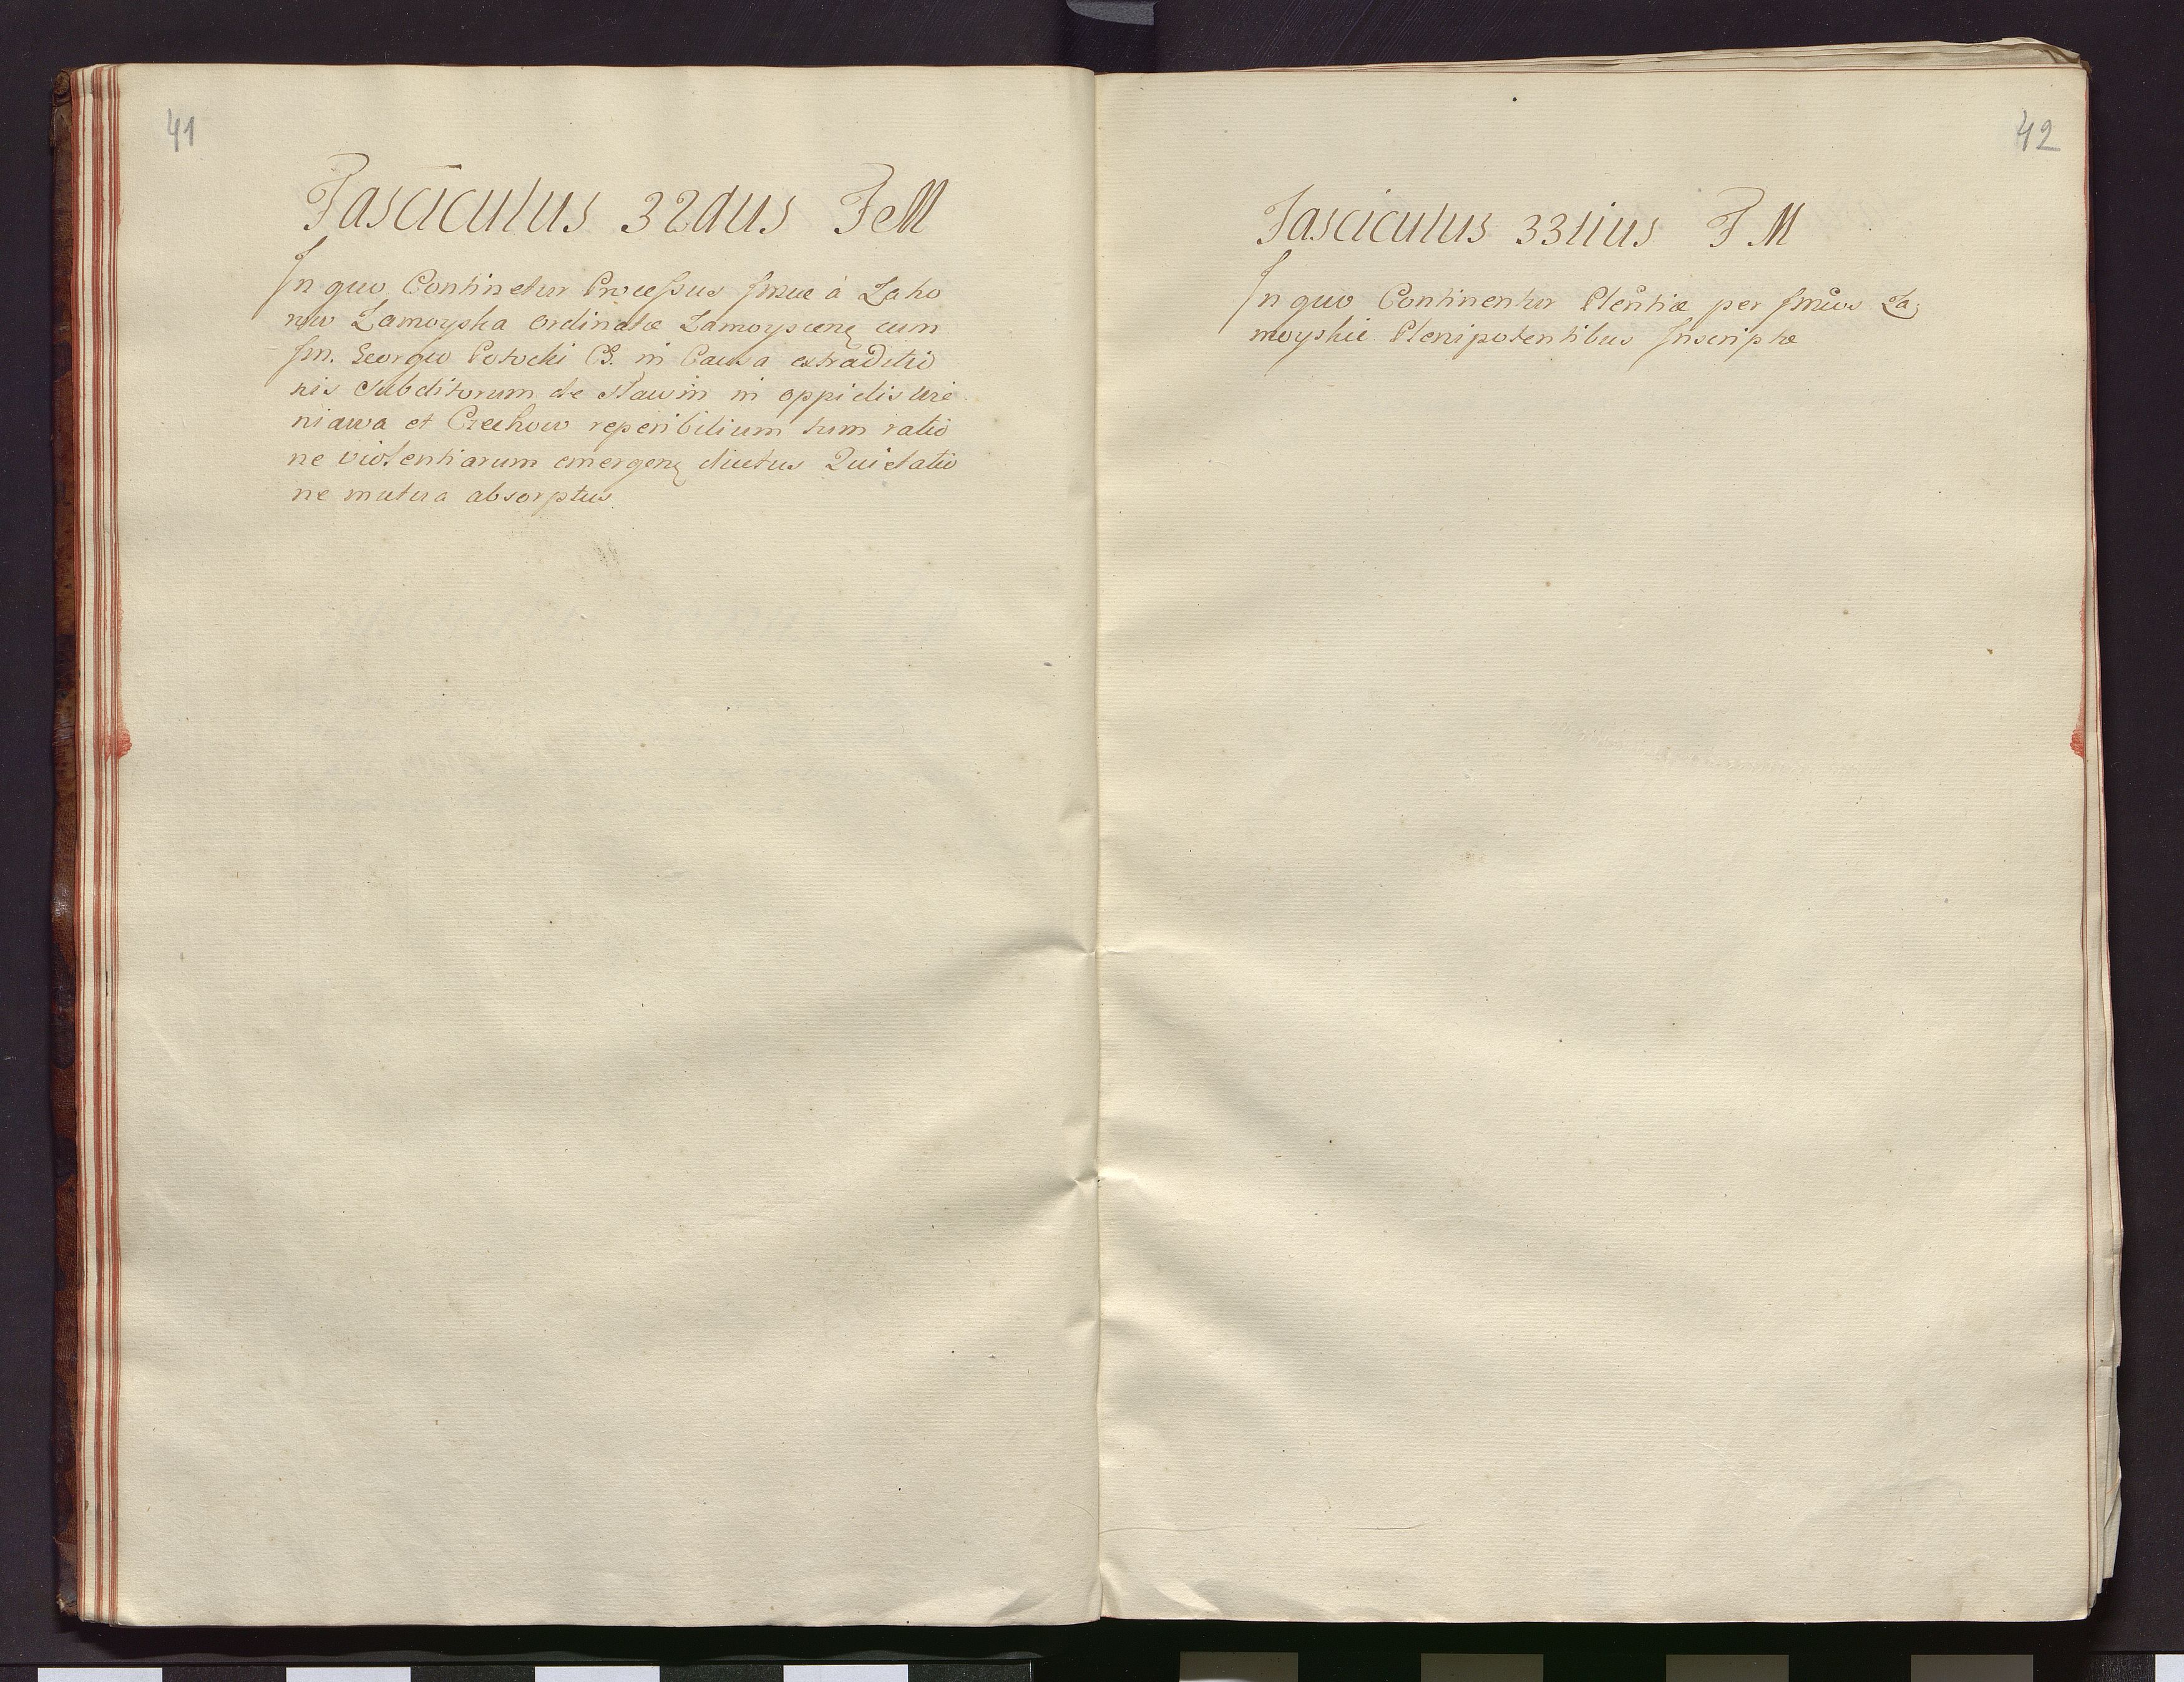 41
Fasciculus 32dus F et M
In quo Continetur Processus Jmae à Zaho
row Zamoyska Ordinatæ Zamoyscenę cum
Jm. Georgio Potocki CS. in Causa extraditio
nis Subditorum de Stawin in oppidis Wie
niawa et Czechow reperibilium tum ratio
ne violentiarum emergenę dictus Quietatio
ne mutua absorptus.
42
Fasciculus 33tius F M
In quo Continentur Plentiæ per Jmcos Za;
moyskie Plenipotentibus Inscriptæ